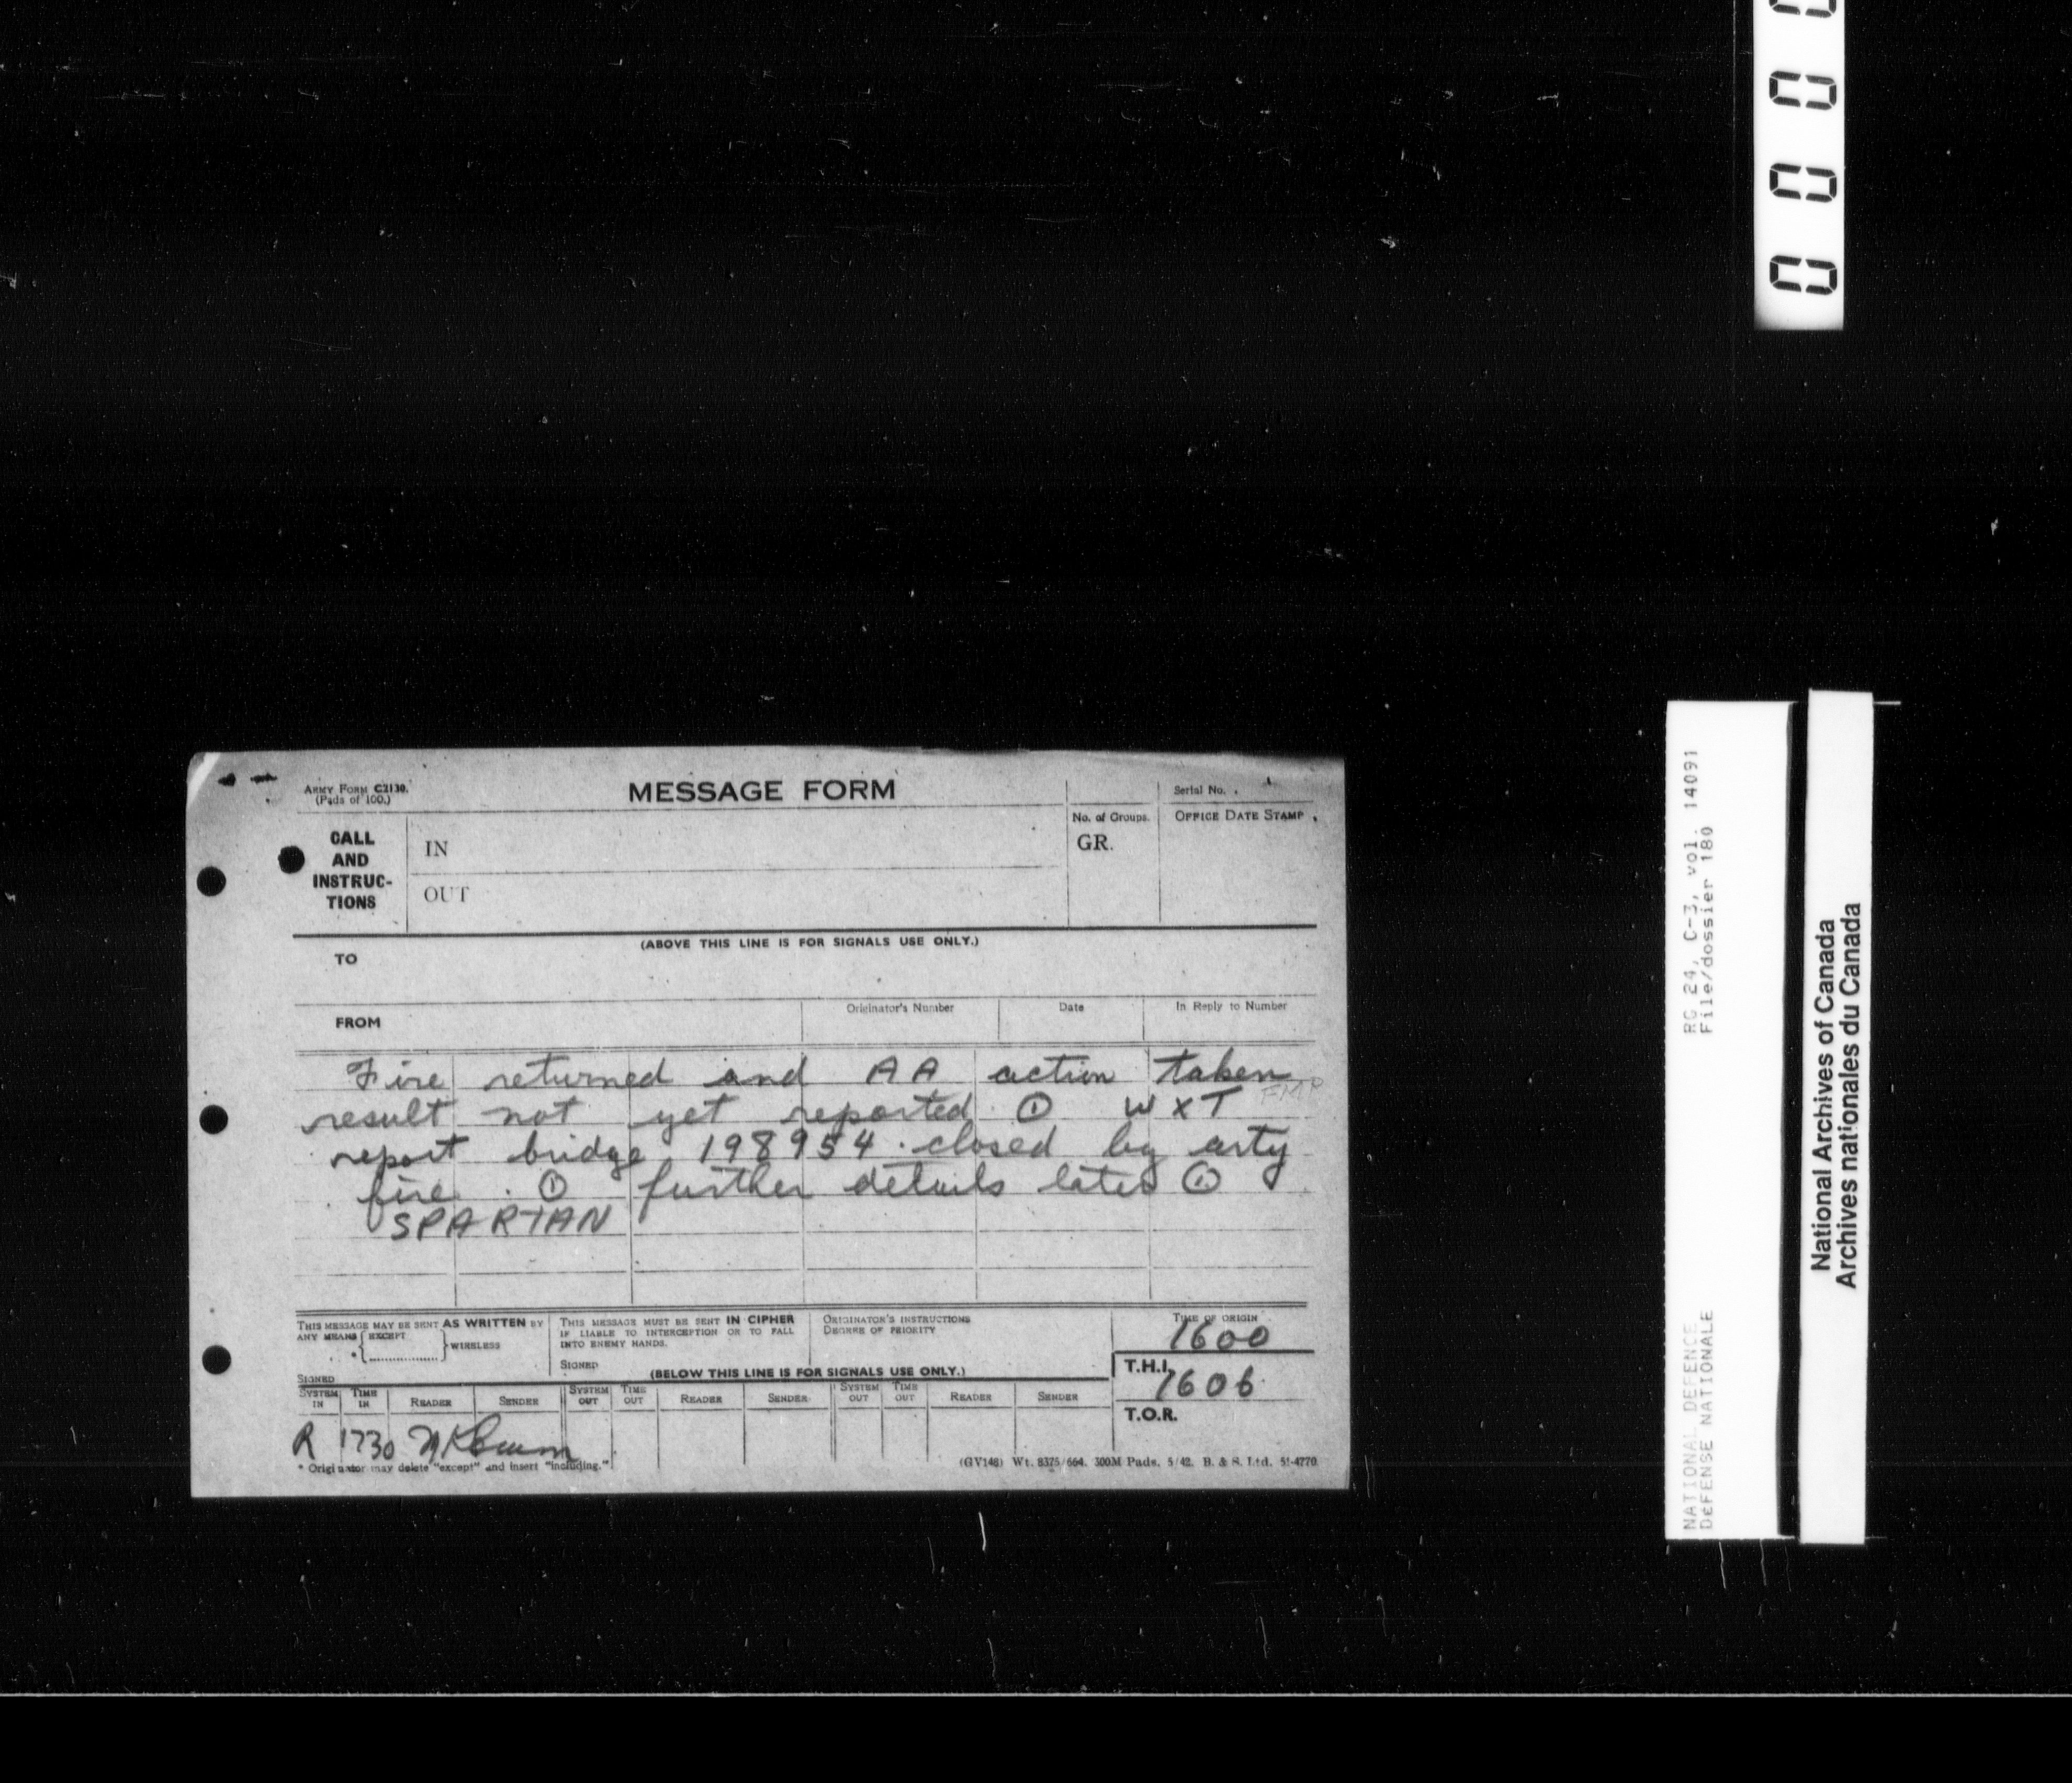 0 0 0 0
ARMY FORM C2130.
(Pads of 100.)
MESSAGE FORM
Serial No.
CALL
AND
INSTRUC-
TIONS
IN
OUT
No. of Groups.
GR.
OFFICE DATE STAMP
(ABOVE THIS LINE IS FOR SIGNALS USE ONLY.)
TO
FROM
Originator's Number
Date
In Reply to Number
Fire returned and AA action taken
result not yet reported ① WXT
report bridge 198954 . closed by arty
fire . ① further details later ①
SPARTAN
THIS MESSAGE MAY BE SENT AS WRITTEN BY
ANY MEANS { EXCEPT
* { ............... } WIRELESS
SIGNED
THIS MESSAGE MUST BE SENT IN CIPHER
IF LIABLE TO INTERCEPTION OR TO FALL
INTO ENEMY HANDS.
SIGNED
ORIGINATOR'S INSTRUCTIONS
DEGREE OF PRIORITY
TIME OF ORIGIN
1600
T.H.I.
1606
T.O.R.
(BELOW THIS LINE IS FOR SIGNALS USE ONLY.)
SYSTEM IN TIME IN READER SENDER SYSTEM OUT TIME OUT READER SENDER SYSTEM OUT TIME OUT READER SENDER
R 1730
* Originator may delete "except" and insert "including."
(GV148) Wt. 8375/664. 300M Pads. 5/42. B. & S. Ltd. 51-4770
RG 24, C-3, vol. 14091
File/dossier 180
NATIONAL DEFENCE
DÉFENSE NATIONALE
National Archives of Canada
Archives nationales du Canada